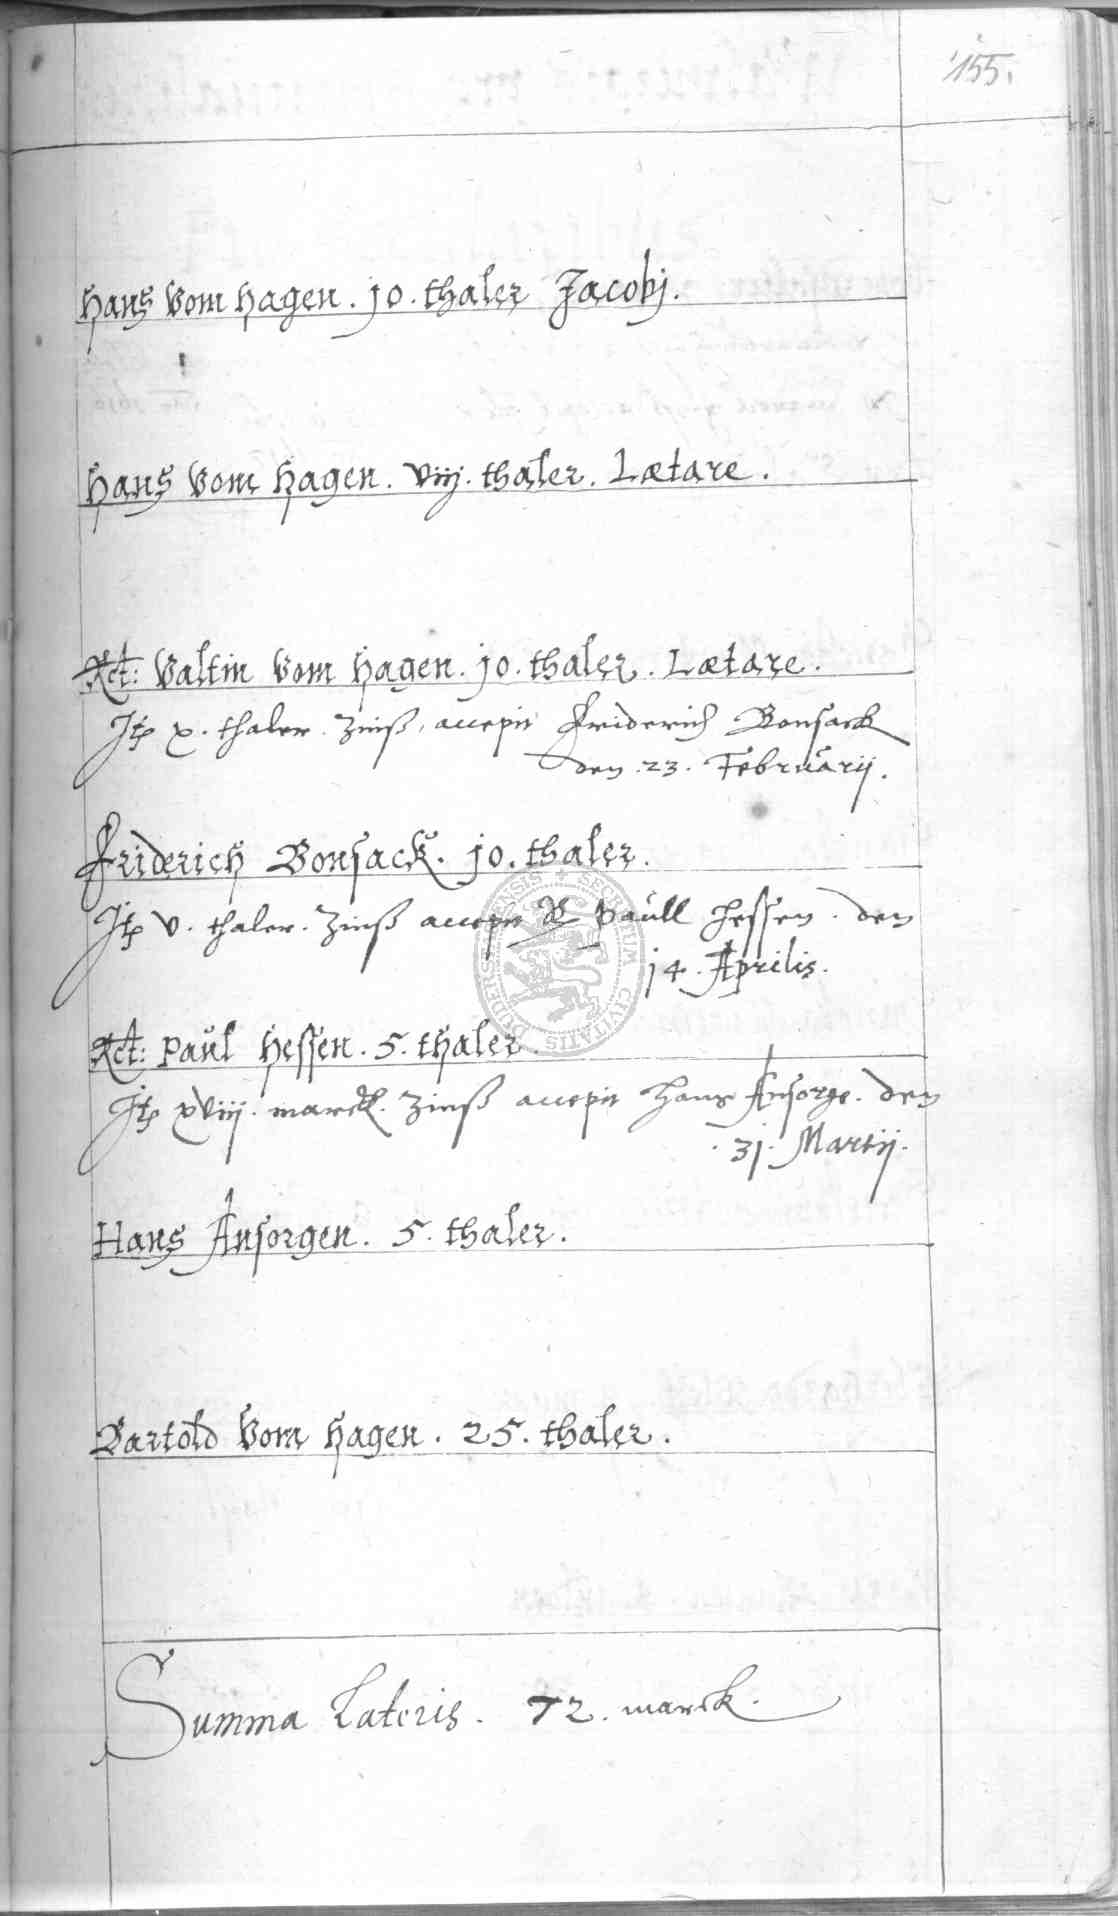 155.
Hans Vom Hagen. jo. thaler Jacobj.
Hans Vom Hagen. Viij. thaler. Lætare.
Rct: Valtin Vom Hagen. jo. thaler. Lætare.
Jtp x. thaler. Zinß, accepit Friderich Bonsack
den. 23. Februarij.
Friderich Bonsack. jo. thaler.
Jtp V. thaler. Zinß accepit Paull Hessen. den
j4. Aprilis.
Rct: Paul Hessen. 5. thaler.
Jtp xViij. marck. Zinß accepit Hans Ansorge. den
. 3j. Martij.
Hans Ansorgen. 5. thaler.
Bartold Vom Hagen. 25. thaler.
Summa Lateris. 72. marck.
DUDERSTADENSIS + SECRETUM CIVITATIS